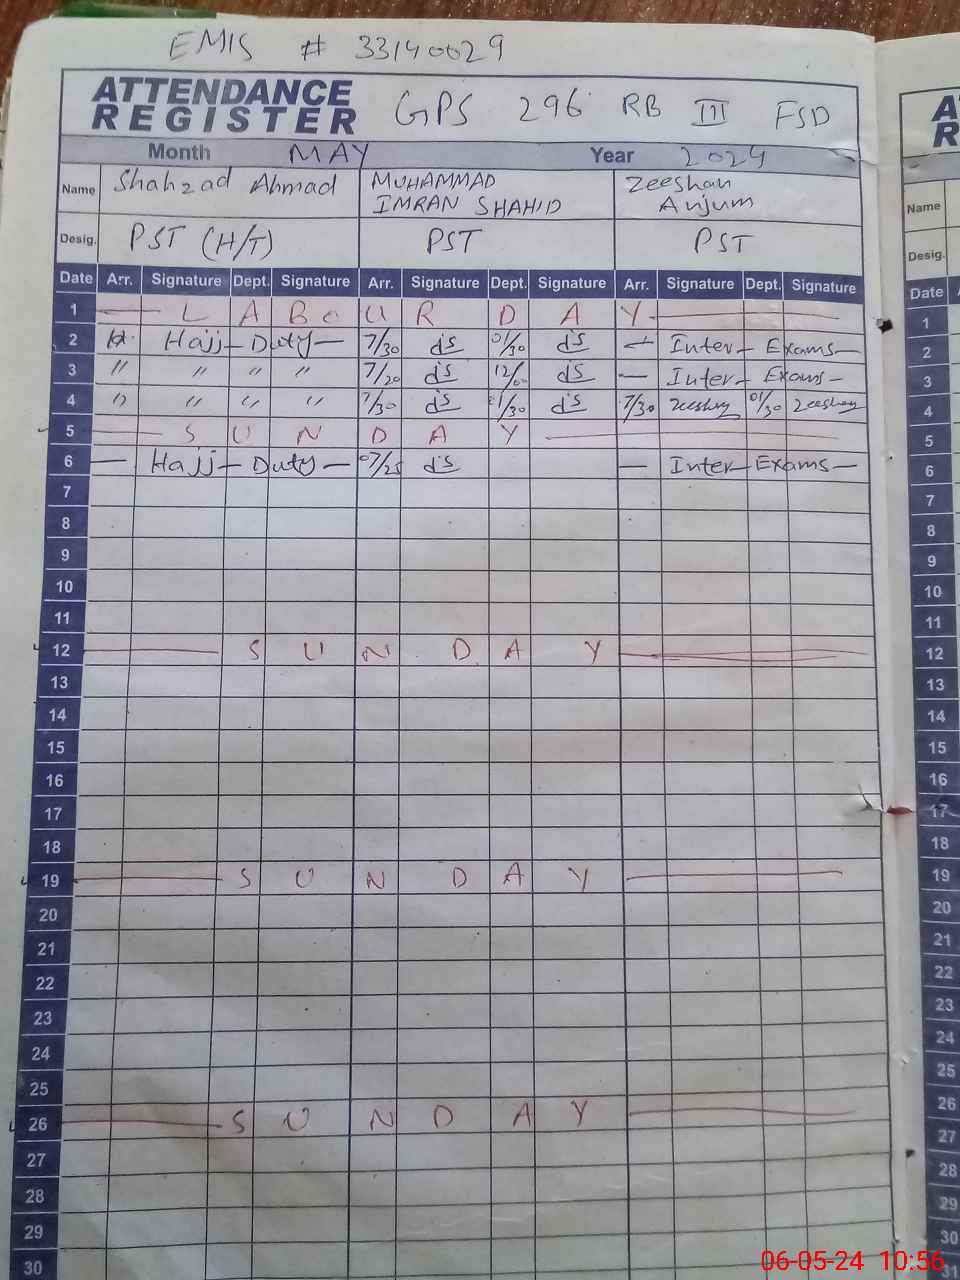 EMIS # 33140029
ATTENDANCE REGISTER GPS 296 RB III FSD
Month MAY Year 2024
Name Shahzad Ahmad MUHAMMAD IMRAN SHAHID Zeeshan Anjum
Desig. PST (H/T) PST PST
Date Arr. Signature Dept. Signature Arr. Signature Dept. Signature Arr. Signature Dept. Signature
1 — L A B O U R D A Y —
2 Hajj - Duty — 7/30 01/30 Inter - Exams —
3 " " " " 7/20 12/00 — Inter - Exams —
4 " " " " 7/30 01/30 7/30 Zeeshan 01/30 Zeeshan
5 — S U N D A Y —
6 — Hajj - Duty — 07/25 — Inter - Exams —
7
8
9
10
11
12 — S U N D A Y —
13
14
15
16
17
18
19 — S U N D A Y —
20
21
22
23
24
25
26 — S U N D A Y —
27
28
29
30
A
R
Name
Desig.
Date A
1
2
3
4
5
6
7
8
9
10
11
12
13
14
15
16
17
18
19
20
21
22
23
24
25
26
27
28
29
30
31
06-05-24 10:56